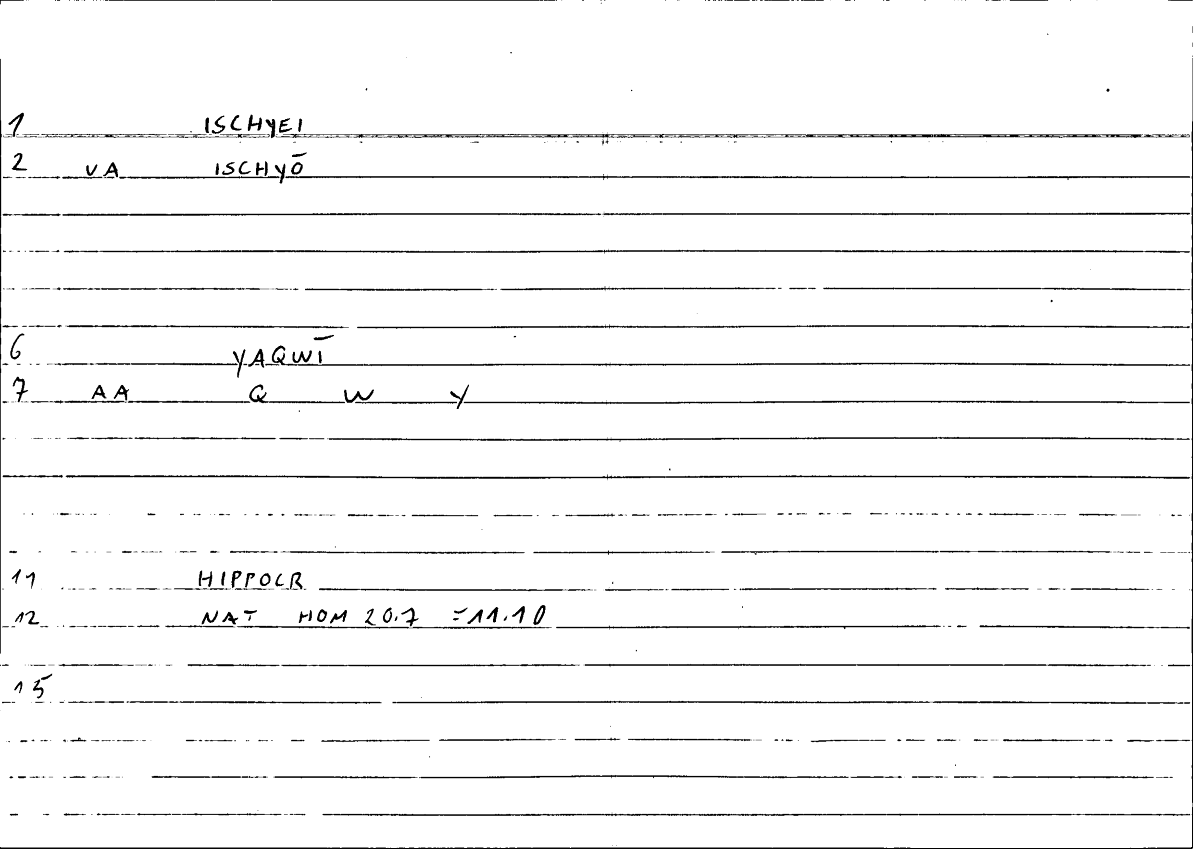 1 ISCHYEI
2 VA ISCHYŌ
6 YAQWĪ
7 AA Q W Y
11 HIPPOCR
12 NAT HOM 20.7 =11.10
15